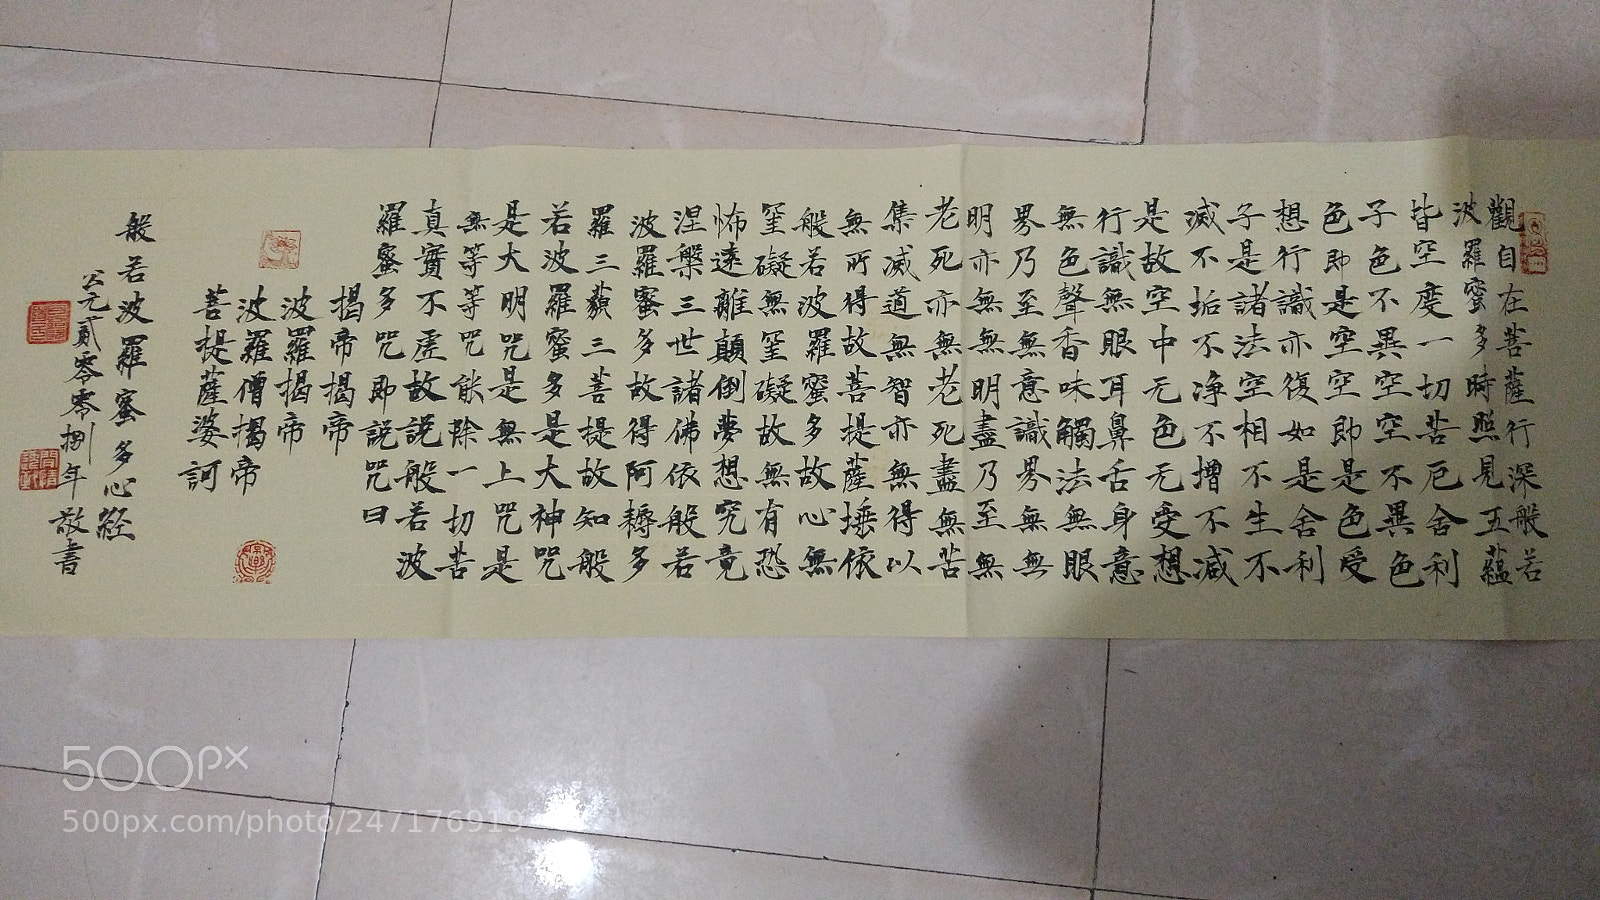 觀自在菩薩行深般若
波羅蜜多時照見五蘊
皆空度一切苦厄舍利
子色不異空空不異色
色即是空空即是色受
想行識亦復如是舍利
子是諸法空相不生不
滅不垢不净不增不減
是故空中无色无受想
行識無眼耳鼻舌身意
無色聲香味觸法無眼
界乃至無意識界無無
明亦無無明盡乃至無
老死亦無老死盡無苦
集滅道無智亦無得以
無所得故菩提薩埵依
般若波羅蜜多故心無
罣礙無罣礙故無有恐
怖遠離顛倒夢想究竟
涅槃三世諸佛依般若
波羅蜜多故得阿耨多
羅三藐三菩提故知般
若波羅蜜多是大神咒
是大明咒是無上咒是
無等等咒能除一切苦
真實不虛故說般若波
羅蜜多咒即說咒曰
揭帝揭帝
波羅揭帝
波羅僧揭帝
菩提薩婆訶
般若波羅蜜多心経
公元貳零零捌年敬書
500px
500px.com/photo/247176919